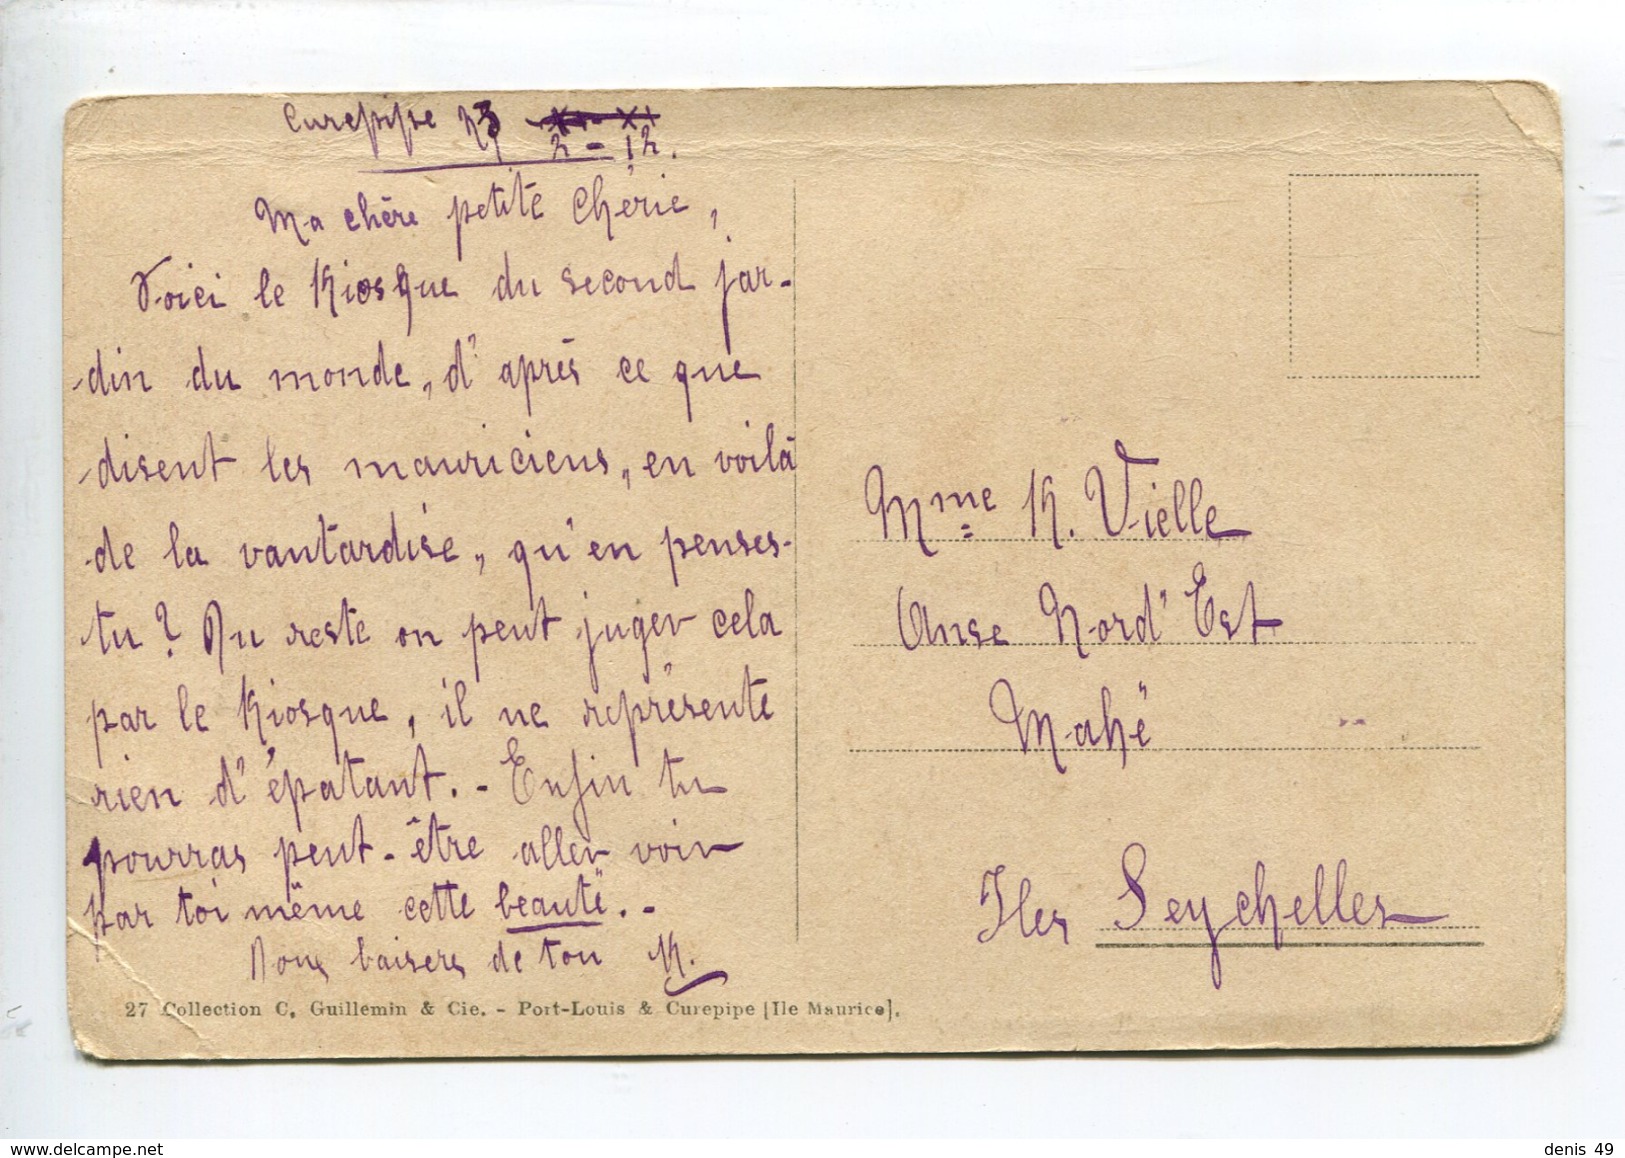 Curepipe 2-12.
Ma chère petite Chérie,
Voici le Kiosque du second jar-
din du monde, d'après ce que
disent les mauriciens, en voilà
de la vantardise, qu'en penses-
tu? Du reste on peut juger cela
par le Kiosque, il ne représente
rien d'épatant. - Enfin tu
pourras peut-être aller voir
par toi même cette beauté. -
baisers de ton K.
27 Collection C. Guillemin & Cie. - Port-Louis & Curepipe [Ile Maurice].
Mme K. Vielle
Anse Nord'Est
Mahé
Iles Seychelles
denis 49